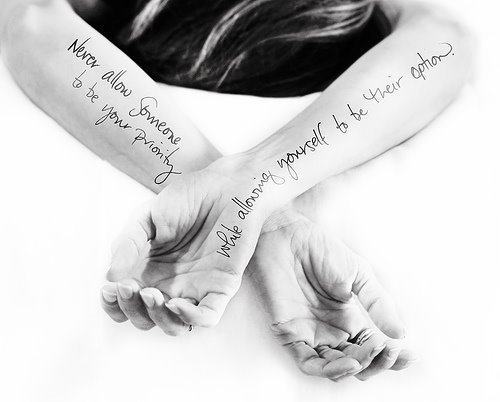 Never allow Someone
to be your priority
while allowing yourself to be their option.